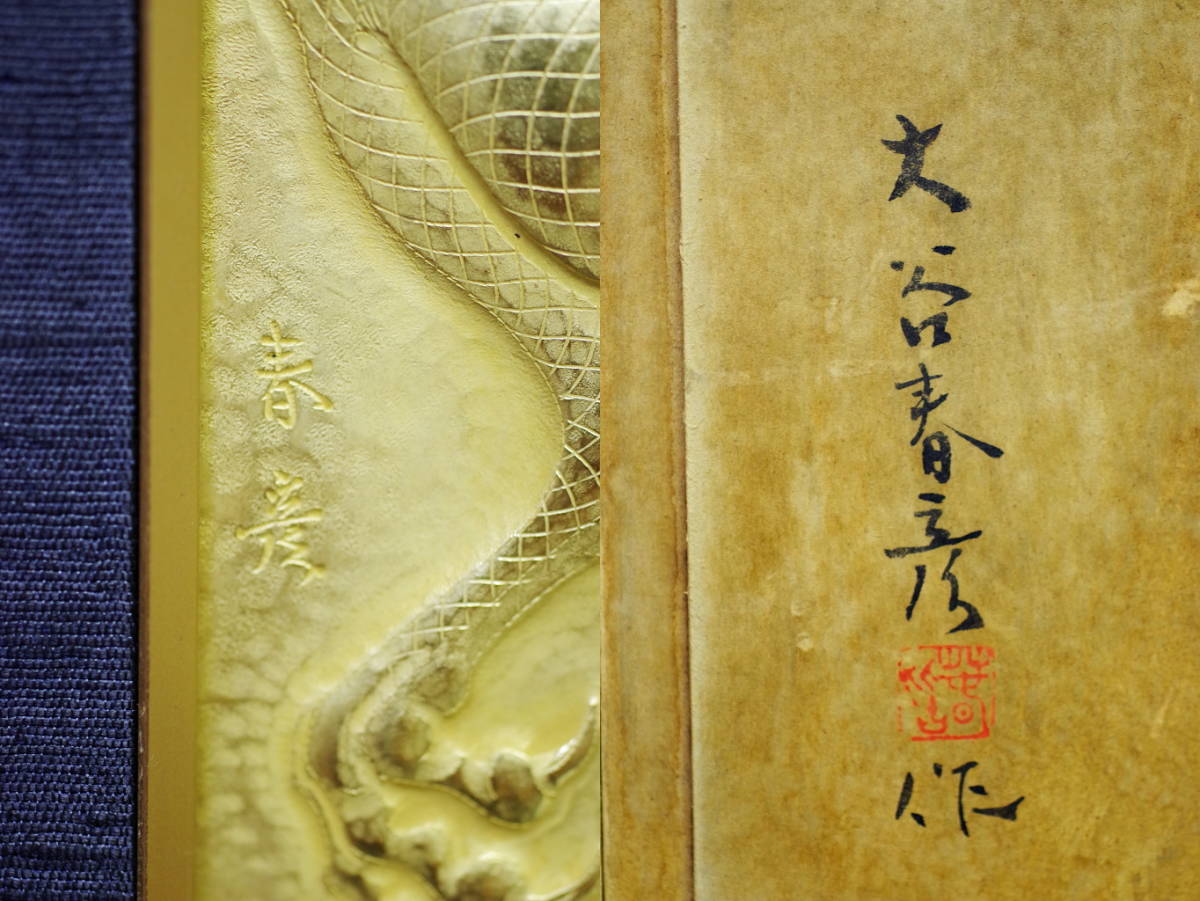 春彦
大谷春彦作